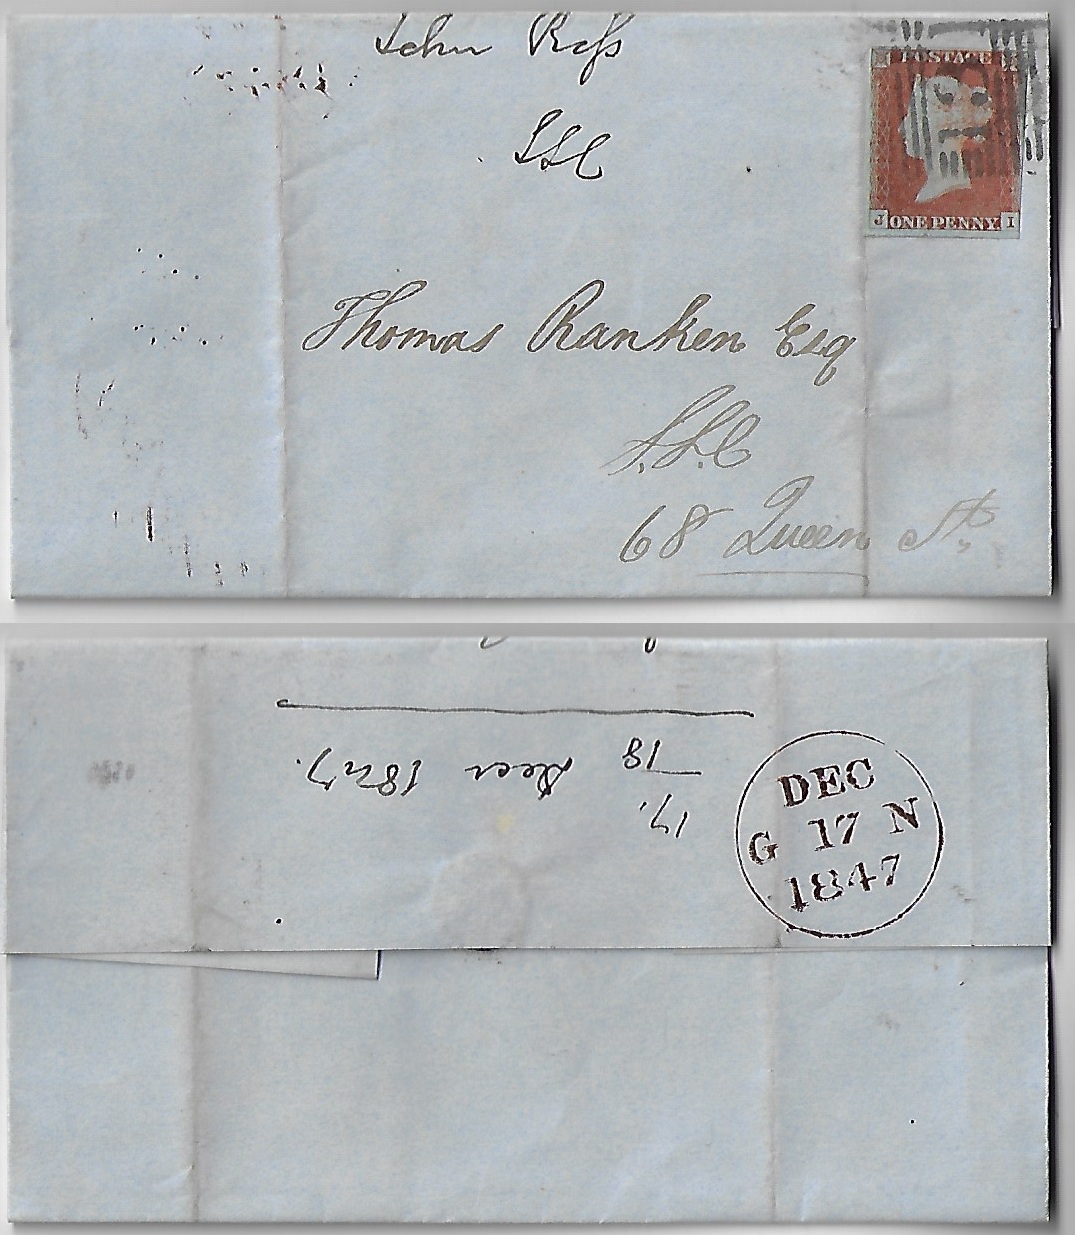 John Ross
SSC
POSTAGE
J ONE PENNY I
Thomas Ranken Esq
S.S.C
68 Queen St.
17/18 Decr 1847.
17.
DEC
G 17 N
1847